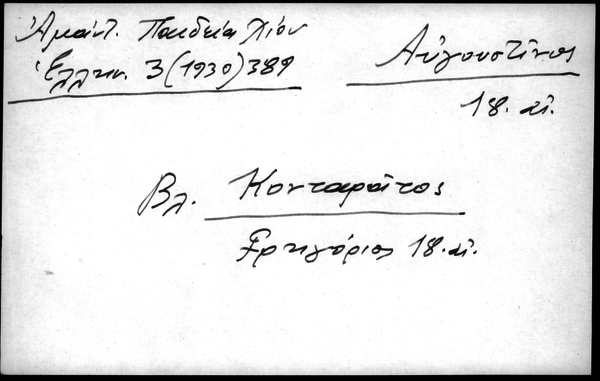 Ἀμάντ. Παιδεία Χίου
Ἑλλην. 3 (1930) 389
Αὐγουστῖνος
18. αἰ.
Βλ. Κονταράτος
Γρηγόριος 18. αἰ.